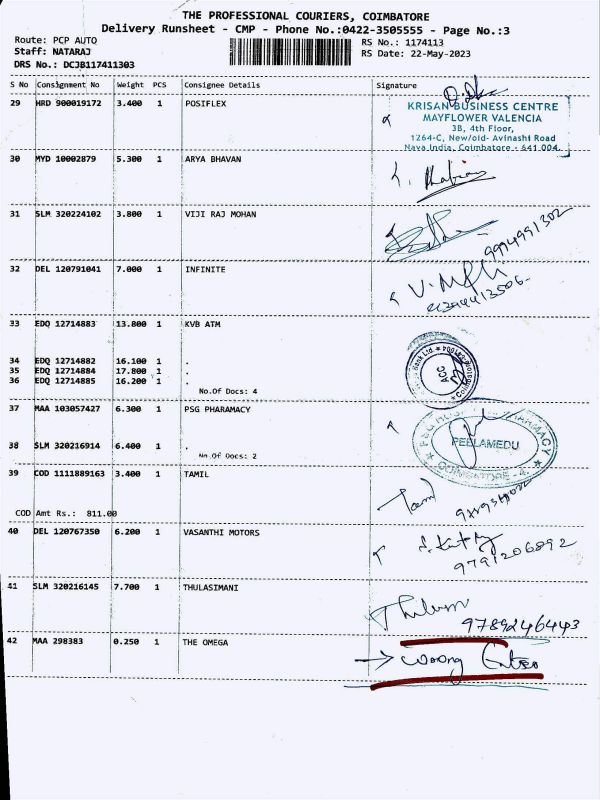 THE PROFESSIONAL COURIERS, COIMBATORE
Delivery Runsheet - CMP - Phone No.:0422-3505555 - Page No.:3
Route: PCP AUTO
Staff: NATARAJ
DRS No.: DCJB117411303
RS No.: 1174113
RS Date: 22-May-2023
S No Consignment No Weight PCS Consignee Details Signature
29 HRD 900019172 3.400 1 POSIFLEX
KRISAN BUSINESS CENTRE
MAYFLOWER VALENCIA
3B, 4th Floor,
1264-C, New/old- Avinashi Road
Nava India, Coimbatore - 641 004.
30 MYD 10002879 5.300 1 ARYA BHAVAN
31 SLM 320224102 3.800 1 VIJI RAJ MOHAN
9994991302
32 DEL 120791041 7.000 1 INFINITE
33 EDQ 12714883 13.800 1 KVB ATM
34 EDQ 12714882 16.100 1 .
35 EDQ 12714884 17.800 1 .
36 EDQ 12714885 16.200 1 .
No.Of Docs: 4
37 MAA 103057427 6.300 1 PSG PHARAMACY
PEELAMEDU
COIMBATORE - 4.
38 SLM 320216914 6.400 1 .
No.Of Docs: 2
39 COD 1111889163 3.400 1 TAMIL
COD Amt Rs.: 811.00
40 DEL 120767350 6.200 1 VASANTHI MOTORS
9791206892
41 SLM 320216145 7.700 1 THULASIMANI
9789246443
42 MAA 298383 0.250 1 THE OMEGA